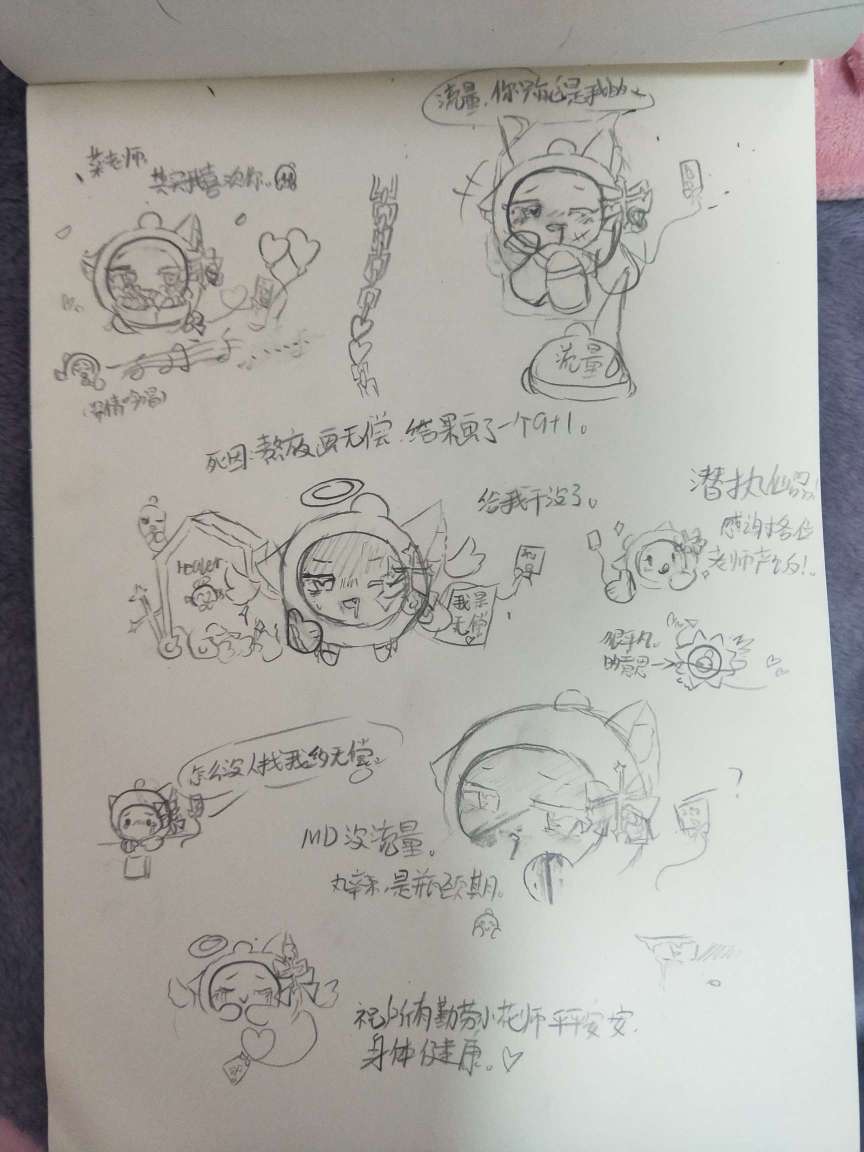 流量,你只能是我的
菜老师,
其实我喜欢你。
流量
(深情吟唱)
死因:熬夜画无偿,结果画了一个9+1。
给我干没了。
Healer
我是
无偿
感谢各位
老师产的!
很平凡
的意思→
怎么没人找我约无偿。
?
MD没流量。
丸辛,是瓶颈期。
祝所有勤劳小花师平平安安,
身体健康。♡